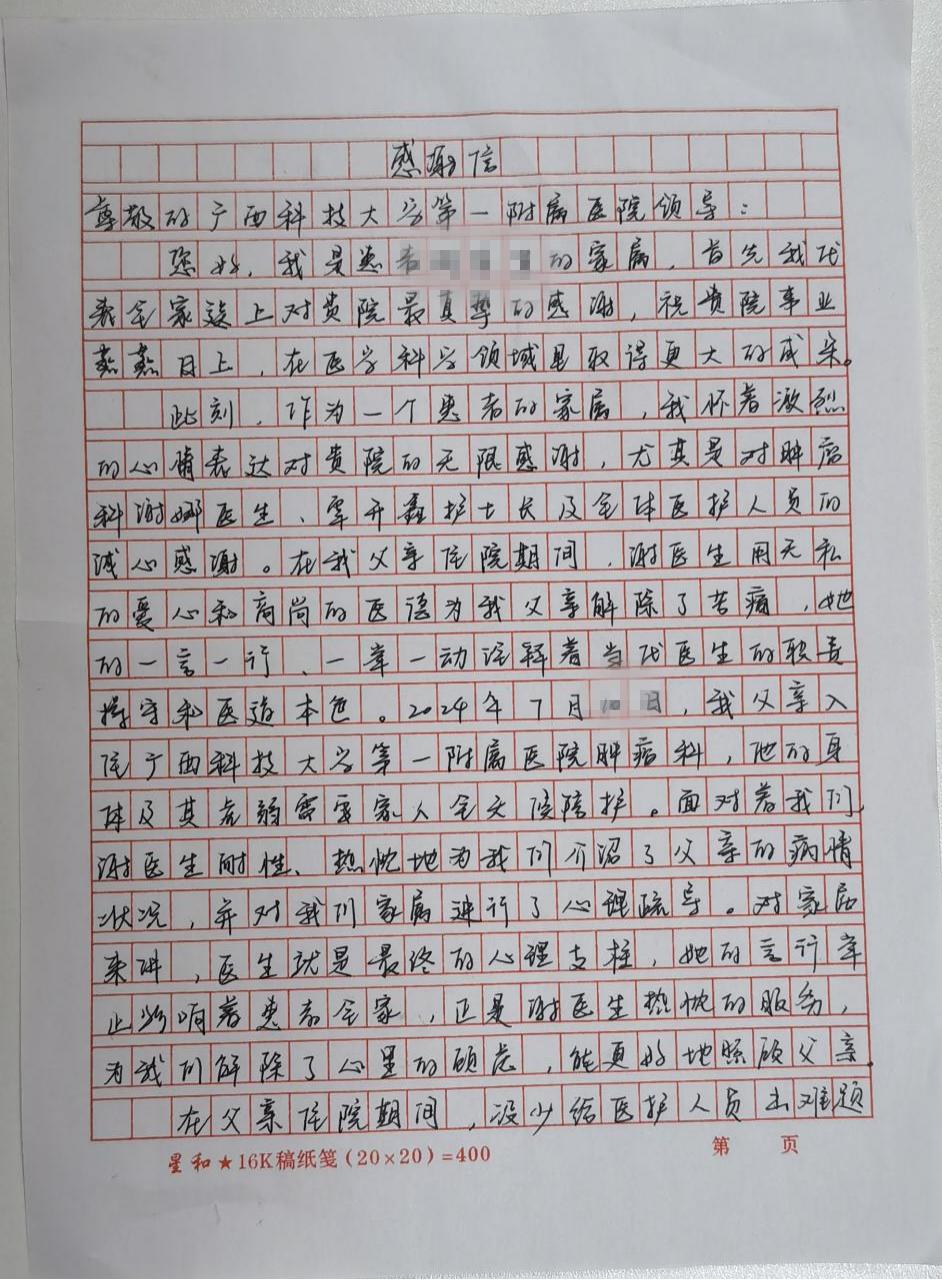 感谢信
尊敬的广西科技大学第一附属医院领导：
您好，我是患者的家属，首先我代
表全家送上对贵院最真挚的感谢，祝贵院事业
蒸蒸日上，在医学科学领域里取得更大的成果。
此刻，作为一个患者的家属，我怀着激烈
的心情表达对贵院的无限感谢，尤其是对肿瘤
科谢娜医生、覃开鑫护士长及全体医护人员的
诚心感谢。在我父亲住院期间，谢医生用无私
的爱心和高尚的医德为我父亲解除了苦痛，她
的一言一行、一举一动注释着当代医生的职责
操守和医道本色。2024年7月日，我父亲入
住广西科技大学第一附属医院肿瘤科，他的身
体及其虚弱需要家人全天院陪护。面对着我们，
谢医生耐性、热忱地为我们介沼了父亲的病情
状况，并对我们家属进行了心理疏导。对家属
来讲，医生就是最终的心理支柱，她的言行举
止影响着患者全家，正是谢医生热忱的服务，
为我们解除了心里的顾虑，能更好地照顾父亲。
在父亲住院期间，没少给医护人员出难题
星和★16K稿纸笺(20×20)=400 第 页